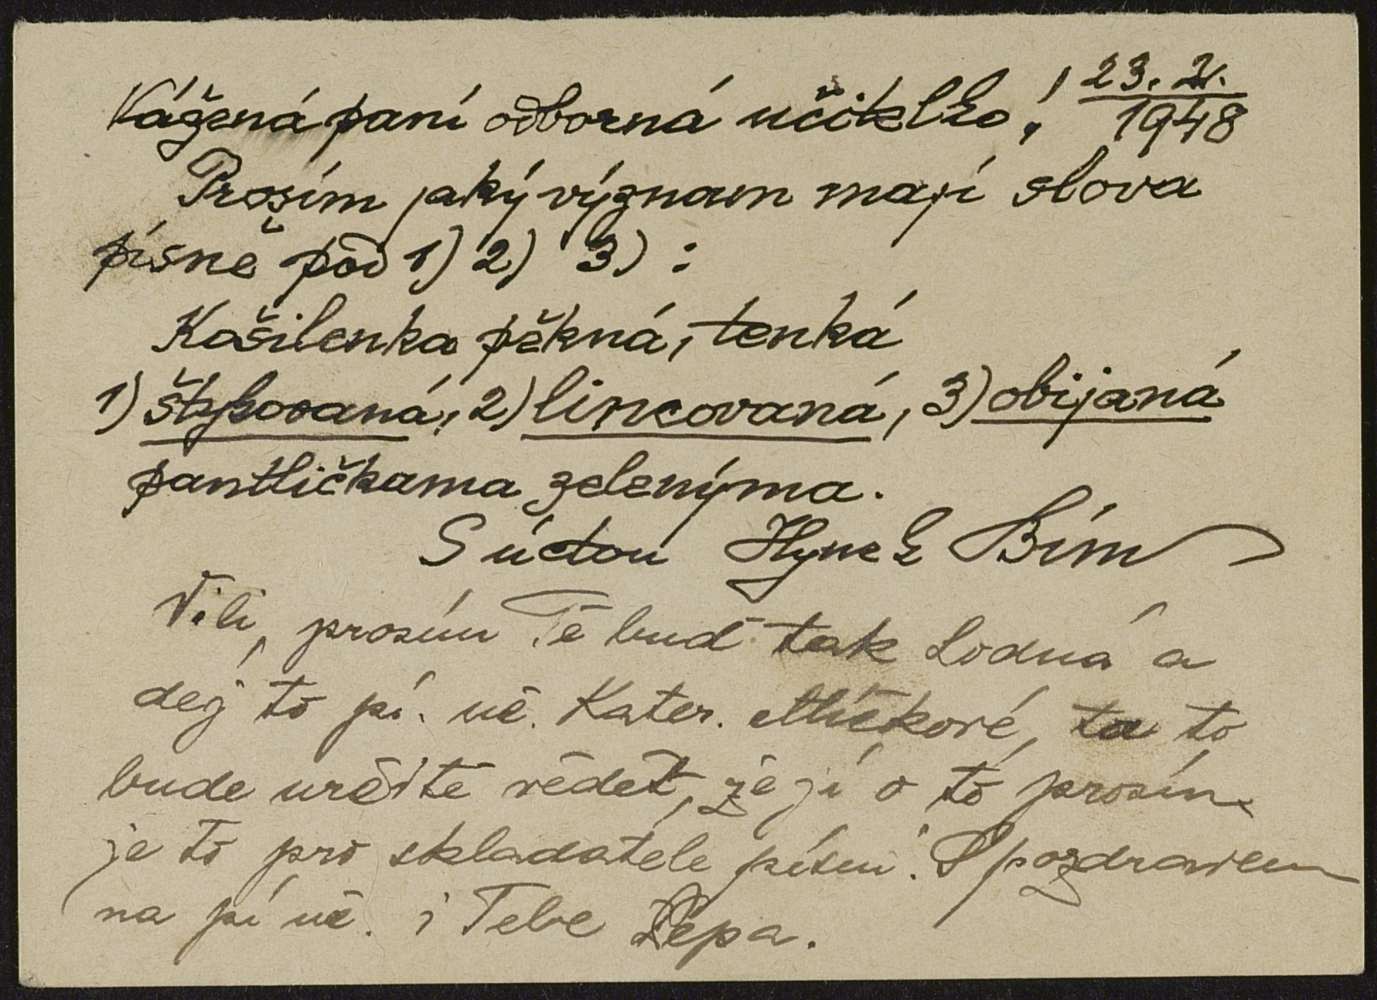 Vážená paní odborná učitelko! 23. 2. 1948
Prosím jaký význam mají slova
písně pod 1) 2) 3) :
Košilenka pěkná, tenká
1) štykovaná, 2) lincovaná, 3) obijaná
pantličkama zelenýma.
S úctou Hynek Bím
Vili, prosím Tě buď tak hodná a
dej to pí. uč. Kater. Mičkové, ta to
bude určitě vědět, že jí o to prosím
je to pro skladatele písní. S pozdravem
na pí uč. i Tebe Pepa.